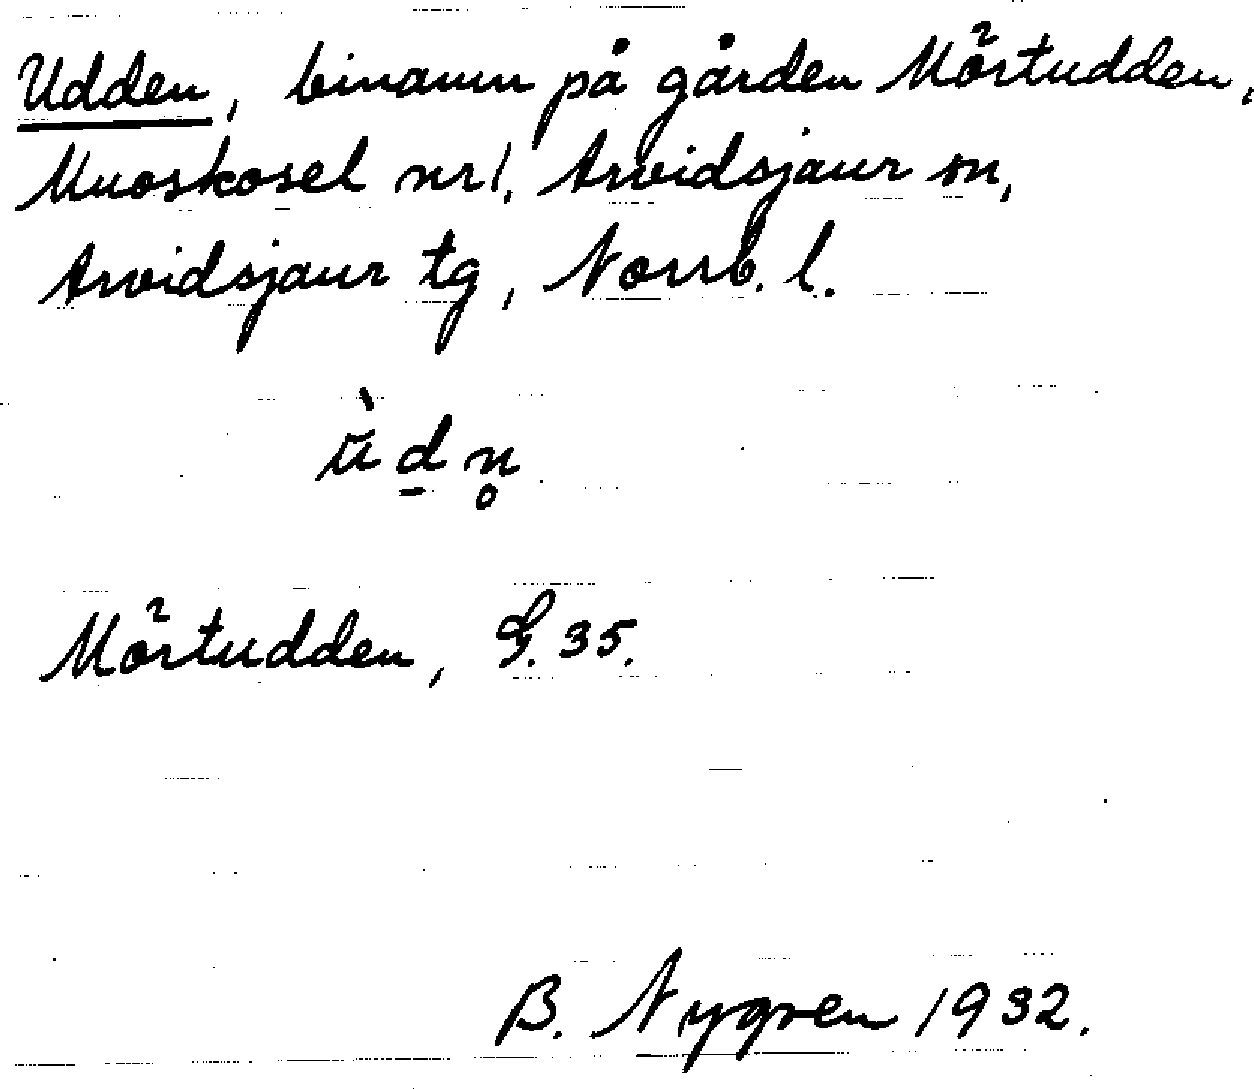 Udden, binamn på gården Mörtudden,
Muoskosel nr1, Arvidsjaur sn,
Arvidsjaur tg, Norrb. l.
ù̄ d̠ n̥
Mörtudden, G. 35.
B. Nygren 1932.